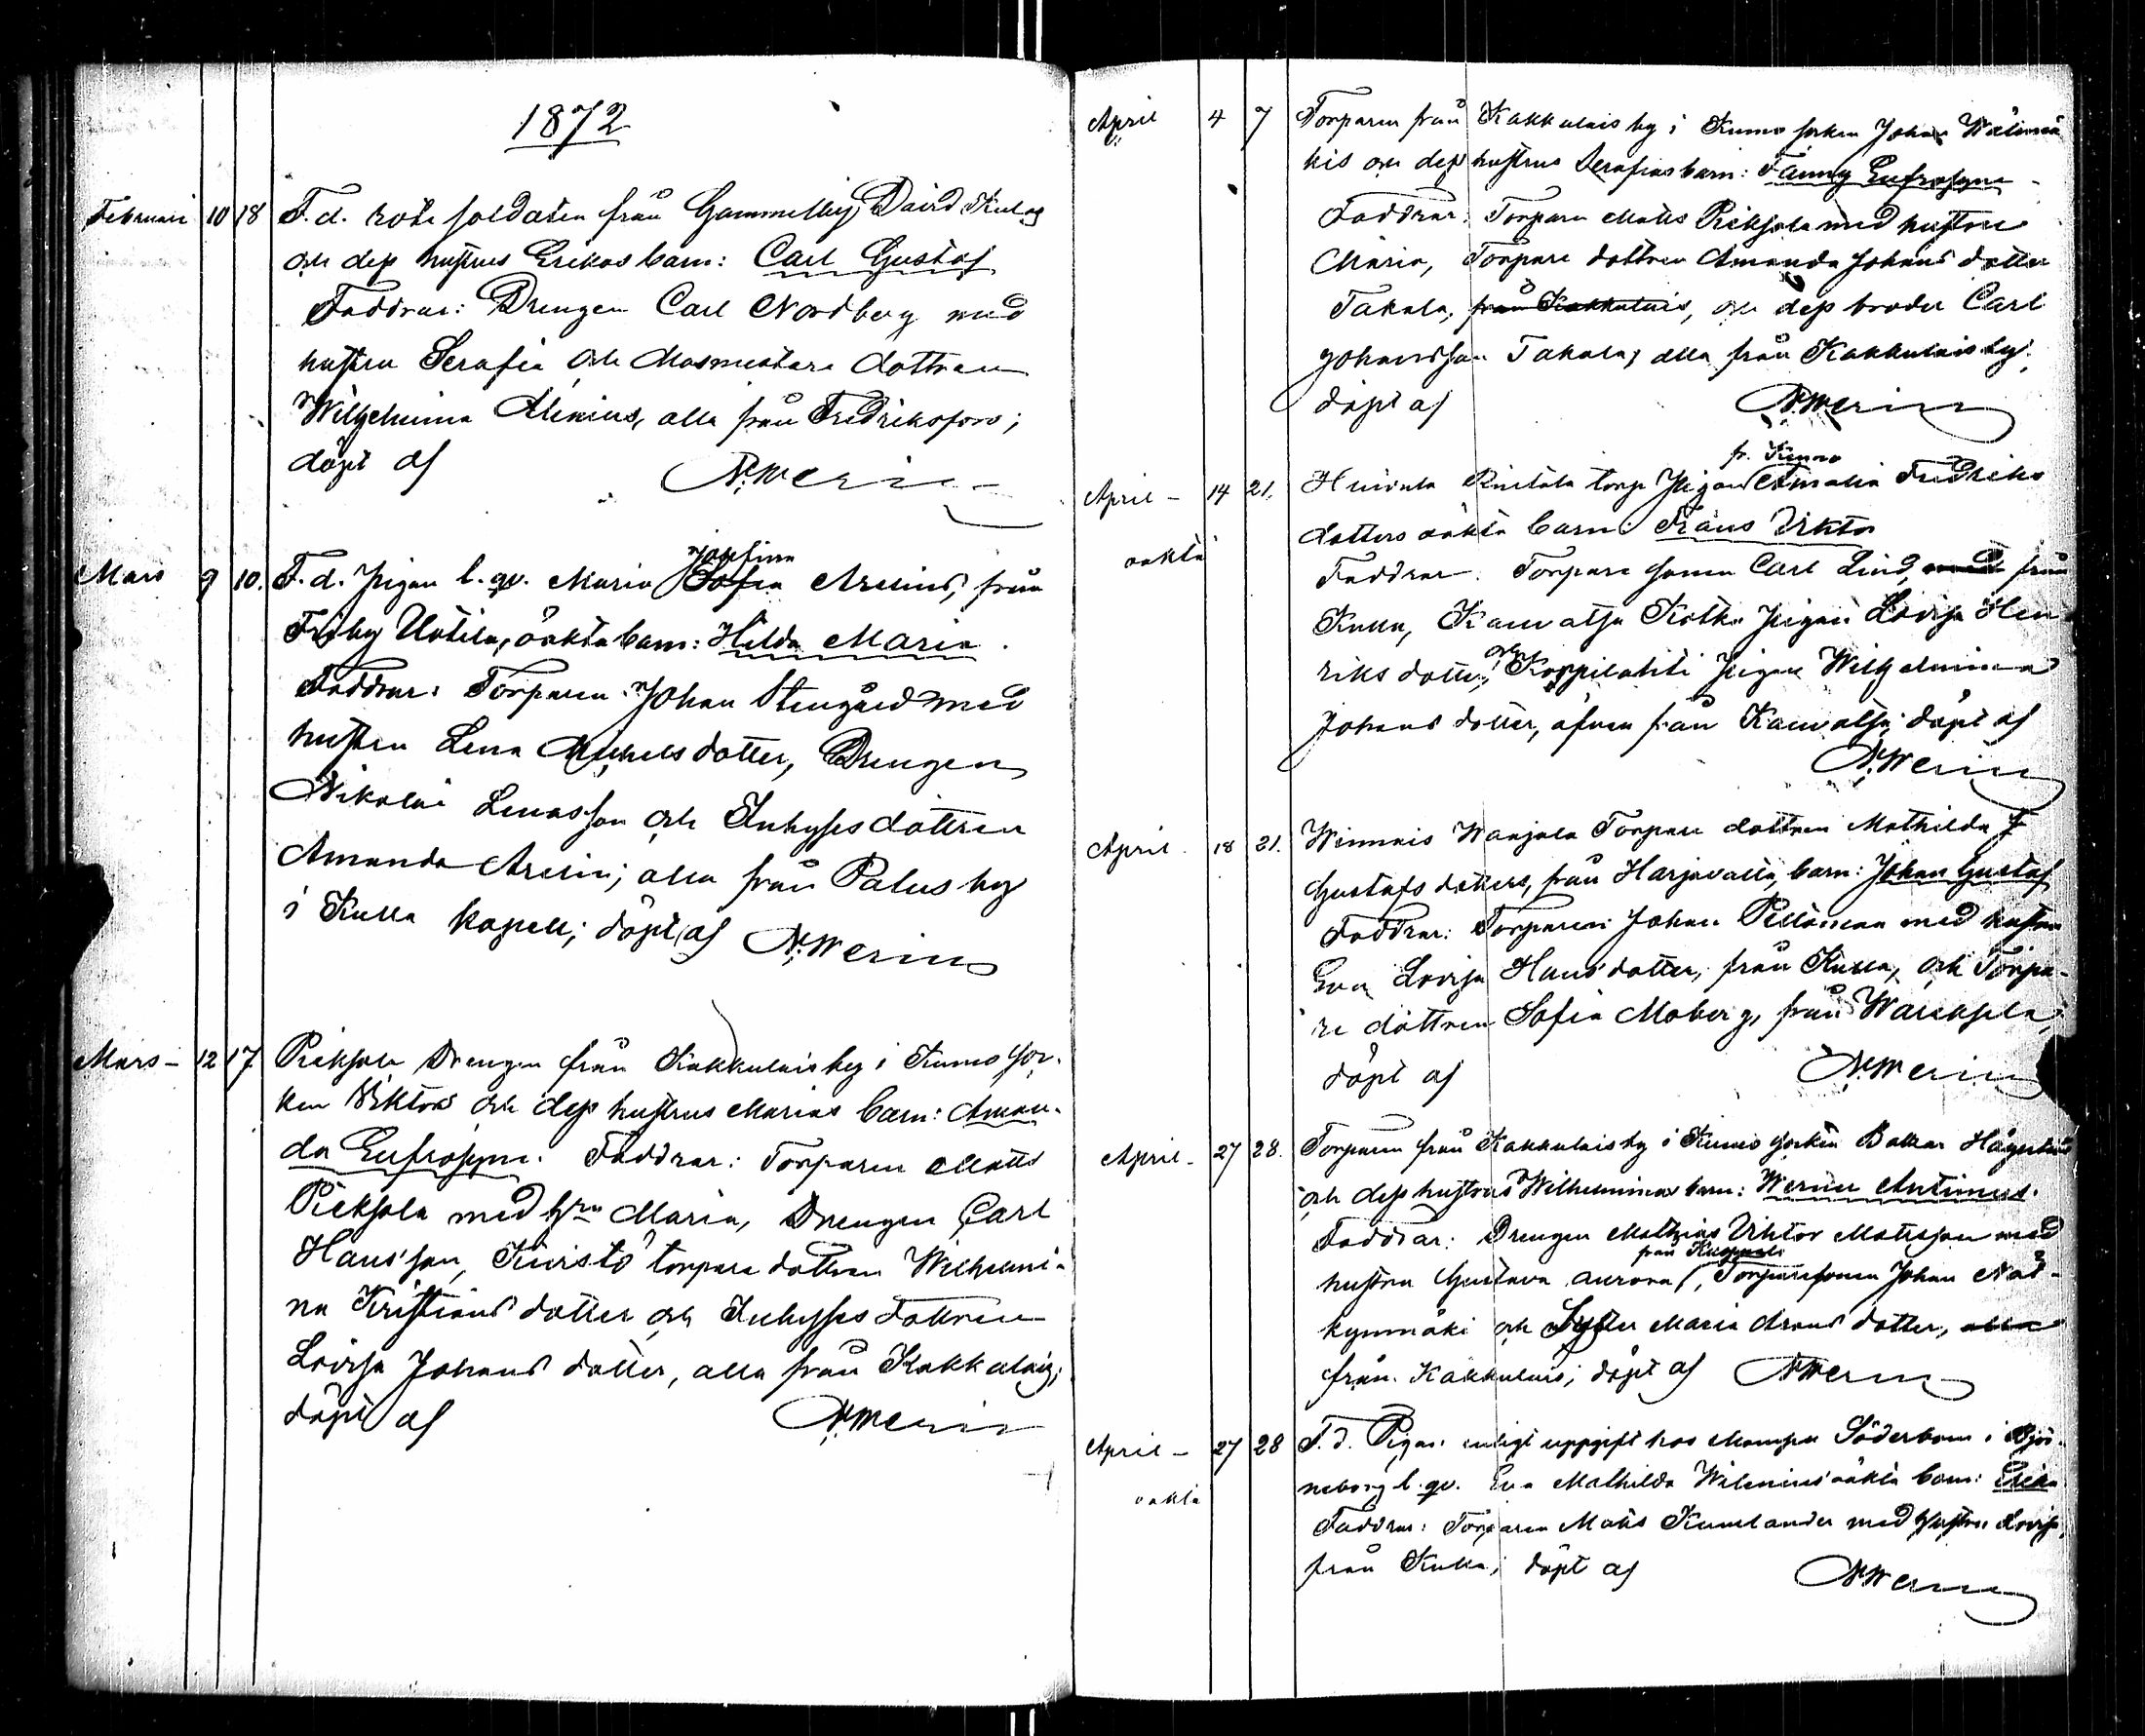 1872
Februari 10 18 F. d. rote soldaten från Gammelby David
och dess hustrus Erikas barn: Carl Gustaf
Faddrar: Drengen Carl Nordberg med
hustru Serafia och Masmestare dottren
Wilhelmina Alenius, alla från Fredriksfors;
döpt af N. Merin
Mars 9 10. F. d. Pigan l. qv. Maria Josefina Sofia Arenius, från
Friby Uotila, oäkta barn: Hilda Maria.
Faddrar: Torparen Johan Stengård med
hustru Lena Michelsdotter, Drengen
Nikolai Lenasson och Inhyses dottren
Amanda; alla från Palus by
i Kulla kapell; döpt af N. Merin
Mars – 12 17 Pieksola Drengen från Kakkulais by i Kumo soc-
ken Viktors och dess hustrus Marias barn: Aman-
da Eufrosyne. Faddrar: Torparen Matts
Pieksola med Hru Maria, Drengen Carl
Hansson, torpare dottren Wilhelmi-
na Kristians dotter och Inhysses dottren
Lovisa Johans dotter, alla från Kakkulais;
döpt af N. Merin
April 4 7 Torparen från Kakkulais by i Kumo socken Johan Wälimä-
kis och dess hustrus Serafias barn: Fanny Eufrosyne
Faddrar: Torparen Matts Pieksola med hustru
Maria, Torpare dottren Amanda Johans dotter
Takala, från Kakkulais, och dess broder Carl
Johansson Takala, alla från Kakkulais by;
döpt af N. Merin
fr. Kumo
April – 14 21. Rintala torp Pigan Amalia Fredriks
oäkta
dotters oäkta barn: Frans Viktor
Faddrar: Torpare sonen Carl Lind, med från
Kulla, Kauvatsa Pigan Lovisa Hen-
riks dotter, och Pigan Wilhelmina
Johans dotter, äfven från Kauvatsa; döpt af
N. Merin
April 18 21. Torpare dottren Mathilda
Gustafs dotters, från Harjavalta, barn: Johan Gustaf
Faddrar: Torparen Johan med hustru
Eva Lovisa Hans dotter, från Kulla, och Torpa-
re dottren Sofia Moberg, från
döpt af N. Merin
April – 27 28. Torparen från Kakkulais by i Kumo socken
och dess hustrus Wilhelminas barn: Werner Antimus.
Faddrar: Drengen Mathias Viktor Matsson med
från
hustru Gustava Aurora, Torparesonen Johan Näs-
kynmäki och Syster Maria Arons dotter, alla
från Kakkulais; döpt af N. Merin
April – 27 28 F. d. Pigan enligt uppgift hos Mamsell Söderbom i Björ-
oäkta
neborg l. qv. Eva Mathilda oäkta barn:
Faddrar: Torparen Matts Kumlander med hustru Lovisa,
från Kulla; döpt af N. Merin